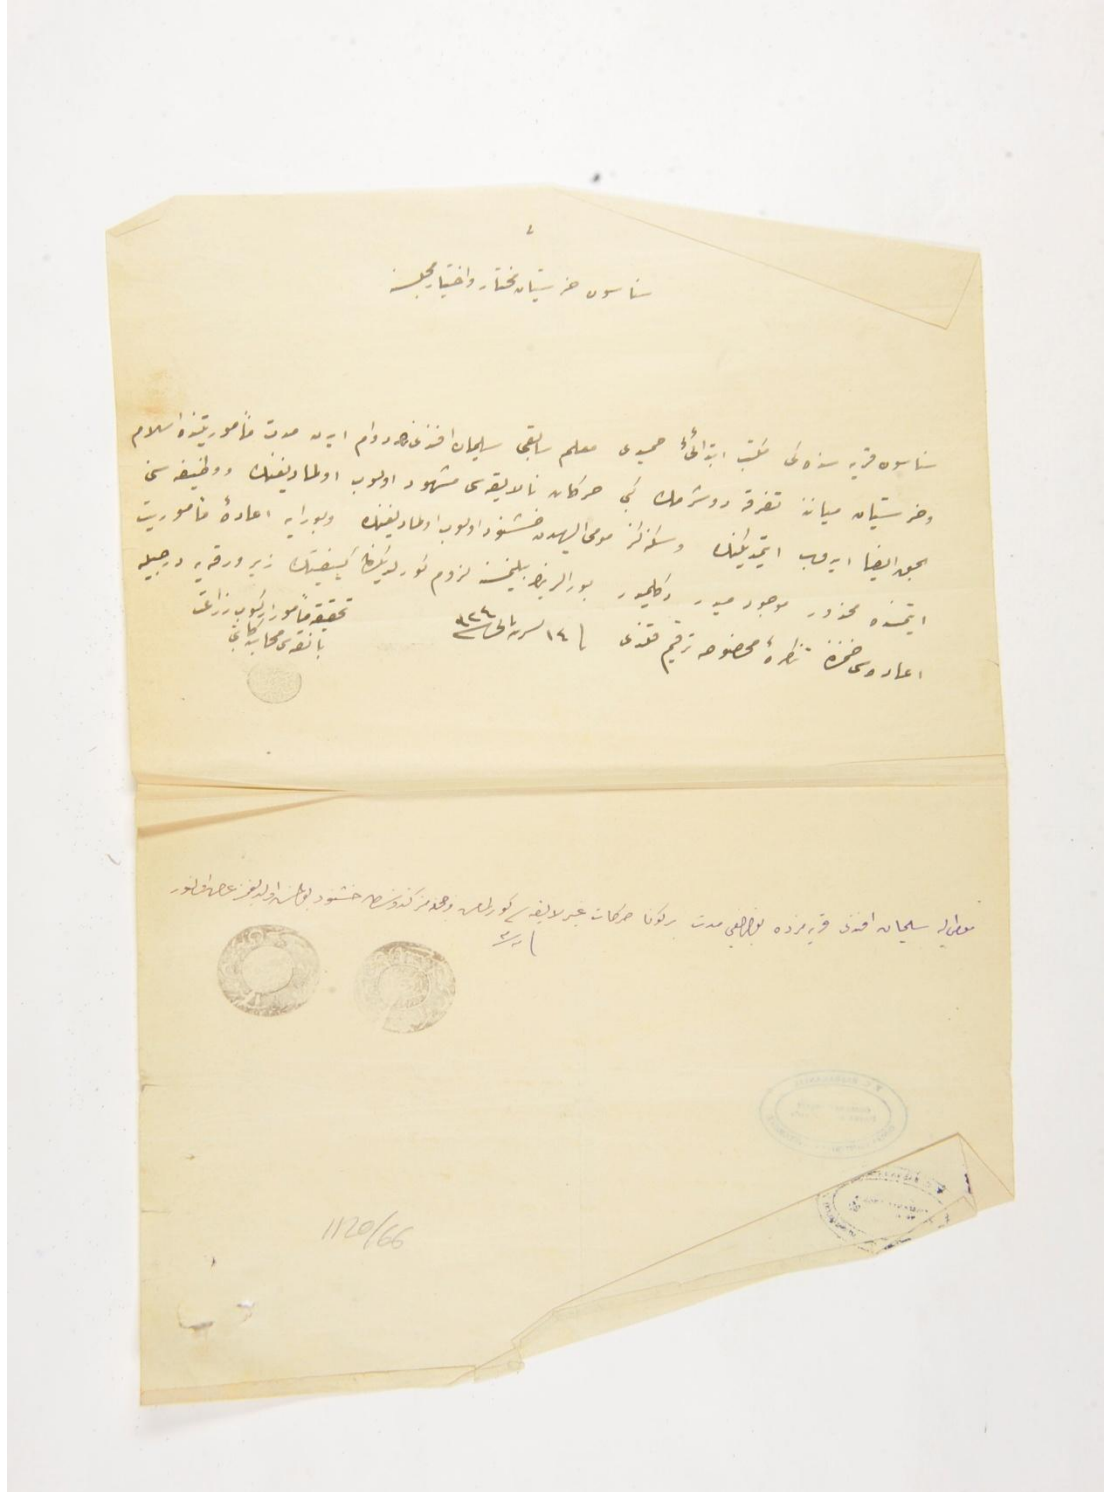 سناسون خرستیان مختار و اختیار مجلسنه
سناسون قریه سنده کی مکتب ابتدائیۀ حمیدی معلم سابقی سلیمان افندی دوام ایدن مدت مأموریتنده اسلام
و خرستیان میاننه تفرقه دوشرمك کبی حرکات نالایقه سی مشهود اولوب اولمادیغنك و وظیفه سنی
بحق ایفا ایدوب ایتمدیکنك و سزلرك مومی الیهدن خشنود اولوب اولمادیغنك و بورایه اعادۀ مأموریت
ایتمسنده محذور موجود میدر دکلمیدر بورالرینك بیلنمسنه لزوم کورلدیکندن کیفیتك زیر ورقه یه درجیله
اعاده سی ضمننده تذکرۀ مخصوصه ترقیم قلندی ١٤
تحقیقه مأمور زراعت
بانقه سی محاسبه کاتبی
مومی الیه سلیمان افندی قریه مزده بولندیغی مدت بر کونا حرکات غیر لایقه سی کورلمامش و هپمز کندوسندن خشنود بولنمش اولدیغمز عرض اولنور
1120/66